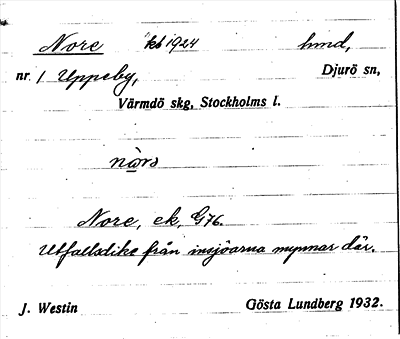 Nore ekb 1924 hmd,
nr. 1 Uppeby, Djurö sn,
Värmdö skg, Stockholms l.
nɷrs
Nore, ek, G76.
Utfallsdike från insjöarna mynnar där.
J. Westin Gösta Lundberg 1932.